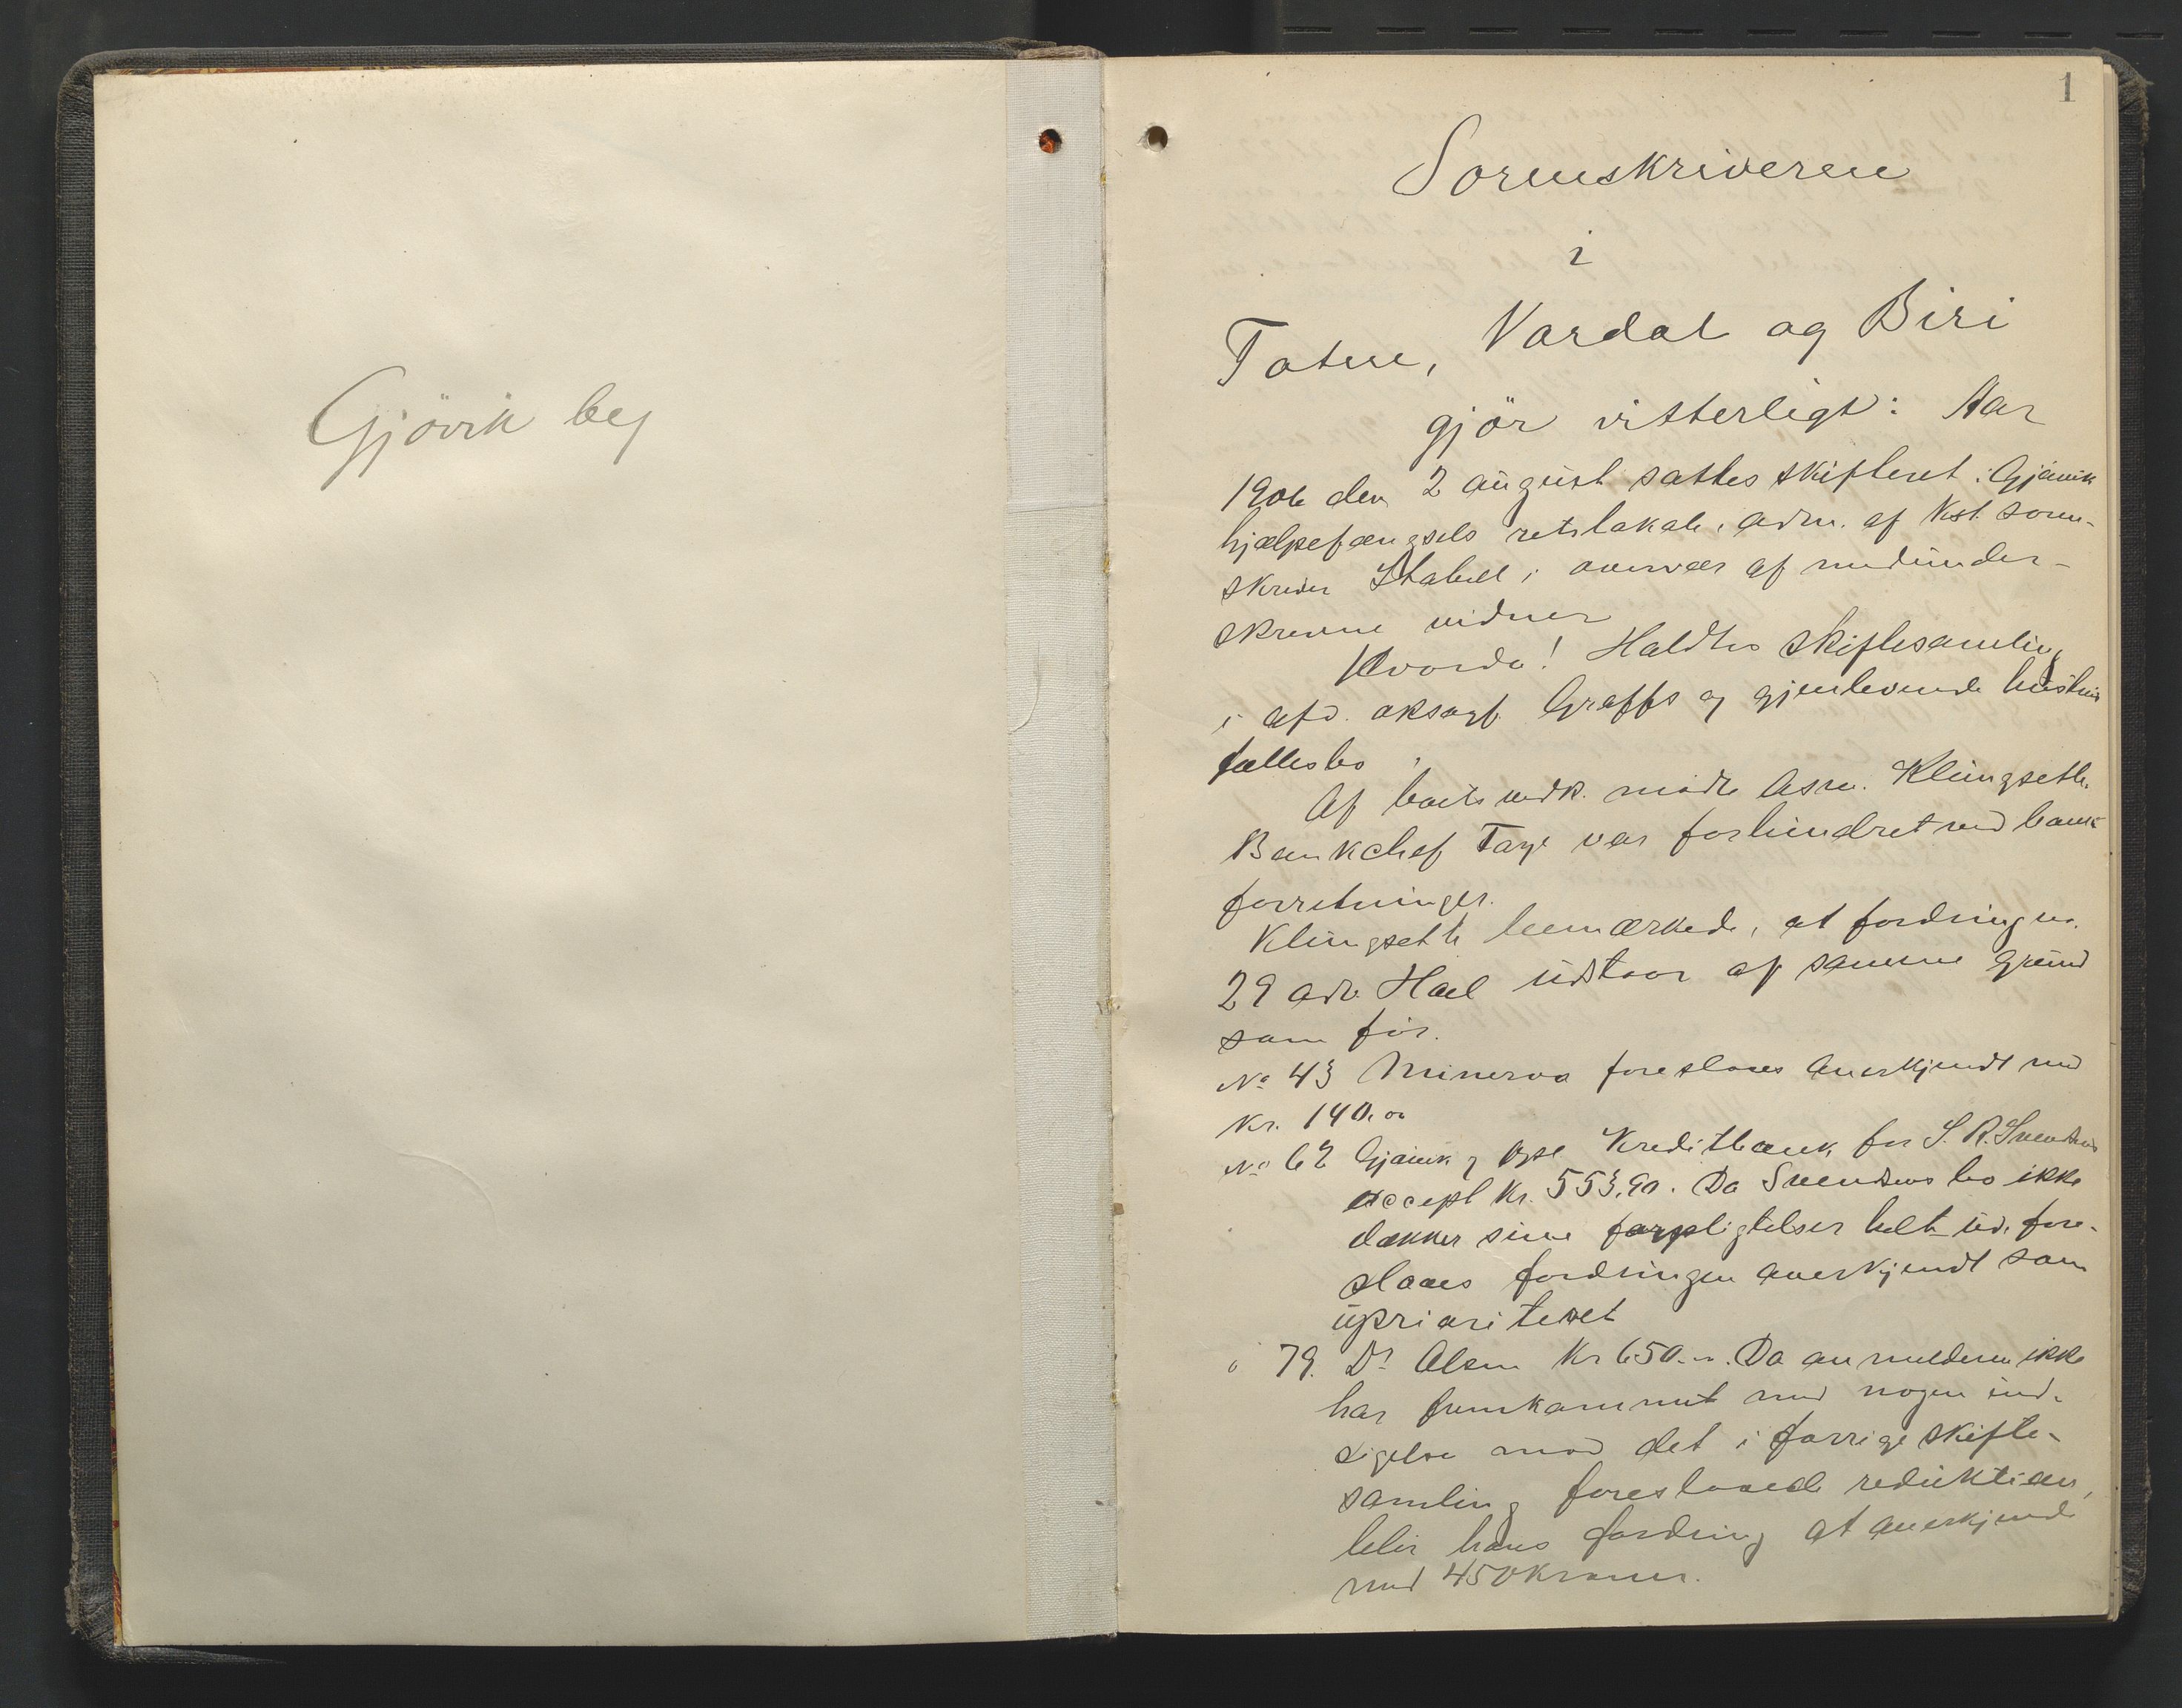 Gjövik by
1
Sorenskriveren
i
Toten, Vardal og Biri
gjör vitterligt: Aar
1906 den 2 august sattes skifteret i Gjøvik
hjælpefængsels retslokale, adm. af kst. soren-
skriver Stabell i overvær af medunder-
skrevne vidner
Hvorda! Holdtes skiftesamling
i afd. oksagf. Graffs og gjenlevende hustrus
fællesbo
Af boets vedk. mødte Asm. Klungseth.
Bankchef Tage var forhindret ved bank
forretninger.
Klungseth bemærkede, at fording no.
29 adv. Hoel udstaar af samme grund
som før.
No 43 Minerva foreslaaes anerkjendt med
kr. 140.00
No 62 Gjøvik og Opl. Kreditbank for S. R. Svendsens
accept kr. 553.90. Da Svendsens bo ikke
dækker sine forpligtelser helt ud, fore-
slaaes fordringen anerkjendt som
uprioriteret
" 79. Dr Olsen kr 650.-. Da anmelderen ikke
har fremkommet med nogen ind-
sigelse mod det i forrige skifte-
samling foreslaaede reduktion,
blir hans fordring at anerkjende
med 450 kroner.